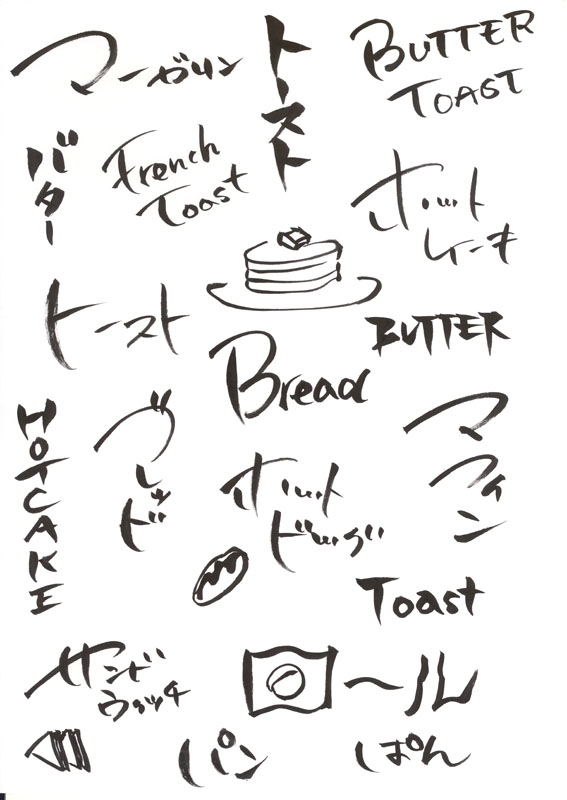 マーガリン
トースト
BUTTER
TOAST
バター
French
Toast
ホット
ケーキ
トースト
BUTTER
Bread
マフィン
HOTCAKE
ブレッド
ホット
ドッグ
Toast
サンド
ウィッチ
ロール
パン
ぱん